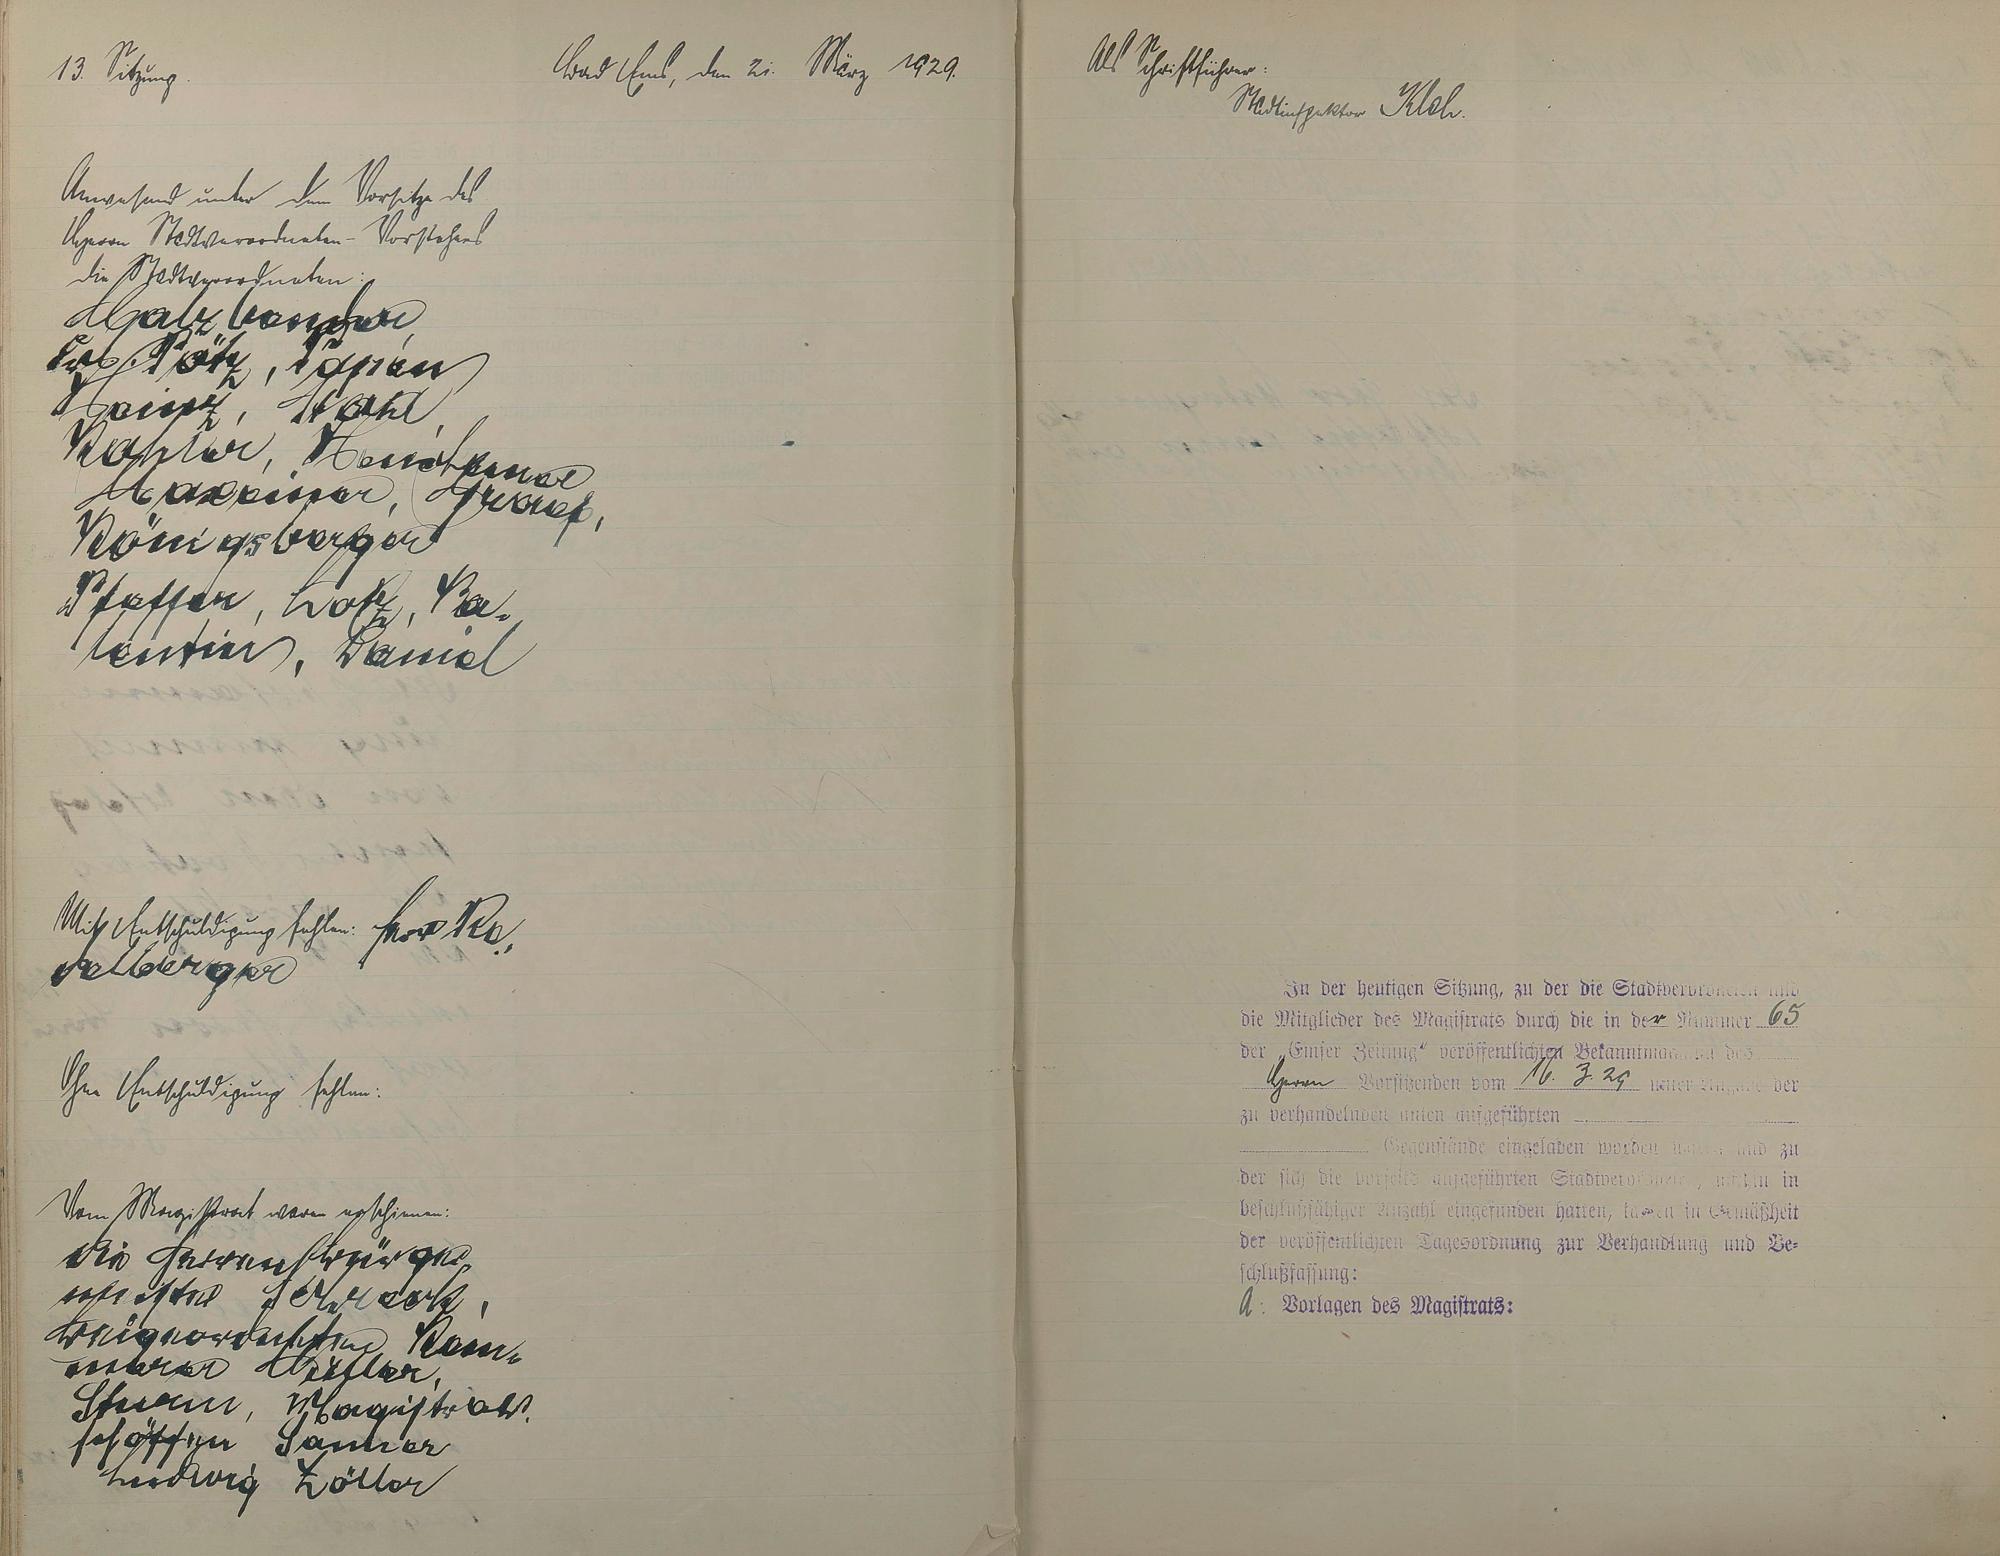 13. Sitzung.
Bad Ems, den 21. März 1929.
Anwesend unter dem Vorsitze des
Herrn Stadtverordneten-Vorstehers
die Stadtverordneten:
Malzbender
Pötz,
Heinz, Stahl
Kahler,
Maxeiner,
Königsberger
Pfeffer, Lotz, Va-
lentin, Daniel
Mit Entschuldigung fehlen: Herr Ka-
Ohne Entschuldigung fehlen:
Vom Magistrat waren erschienen:
die Herren Bürger-
meister
Beigeordneten Käm-
merer
Sturm, Magistrats-
schöffen Sanner
Ludwig Zöller
Als Schriftführer:
Stadtinspektor
In der heutigen Sitzung, zu der die Stadtverordneten und
die Mitglieder des Magistrats durch die in der Nummer 65
der „Emser Zeitung“ veröffentlichten Bekanntmachung des
Herrn Vorsitzenden vom 16. 3. 29 unter Angabe der
zu verhandelnden unten aufgeführten
Gegenstände eingeladen worden waren und zu
der sich die vorseits aufgeführten Stadtverordneten, mithin in
beschlußfähiger Anzahl eingefunden hatten, kamen in Gemäßheit
der veröffentlichten Tagesordnung zur Verhandlung und Be-
schlußfassung:
A: Vorlagen des Magistrats: